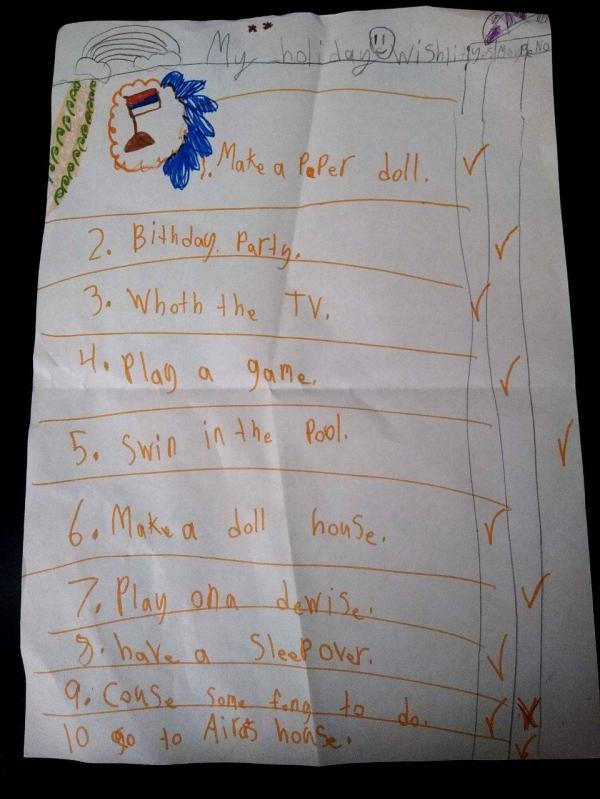 My holiday Wishlist yes MayBe No
1. Make a PaPer doll.
2. Bithday Party.
3. Whoth the TV.
4. Play a game.
5. Swin in the Pool.
6. Make a doll house.
7. Play ona dewise.
8. have a SleePover.
9. Couse some feng to do.
10 go to Airas house.